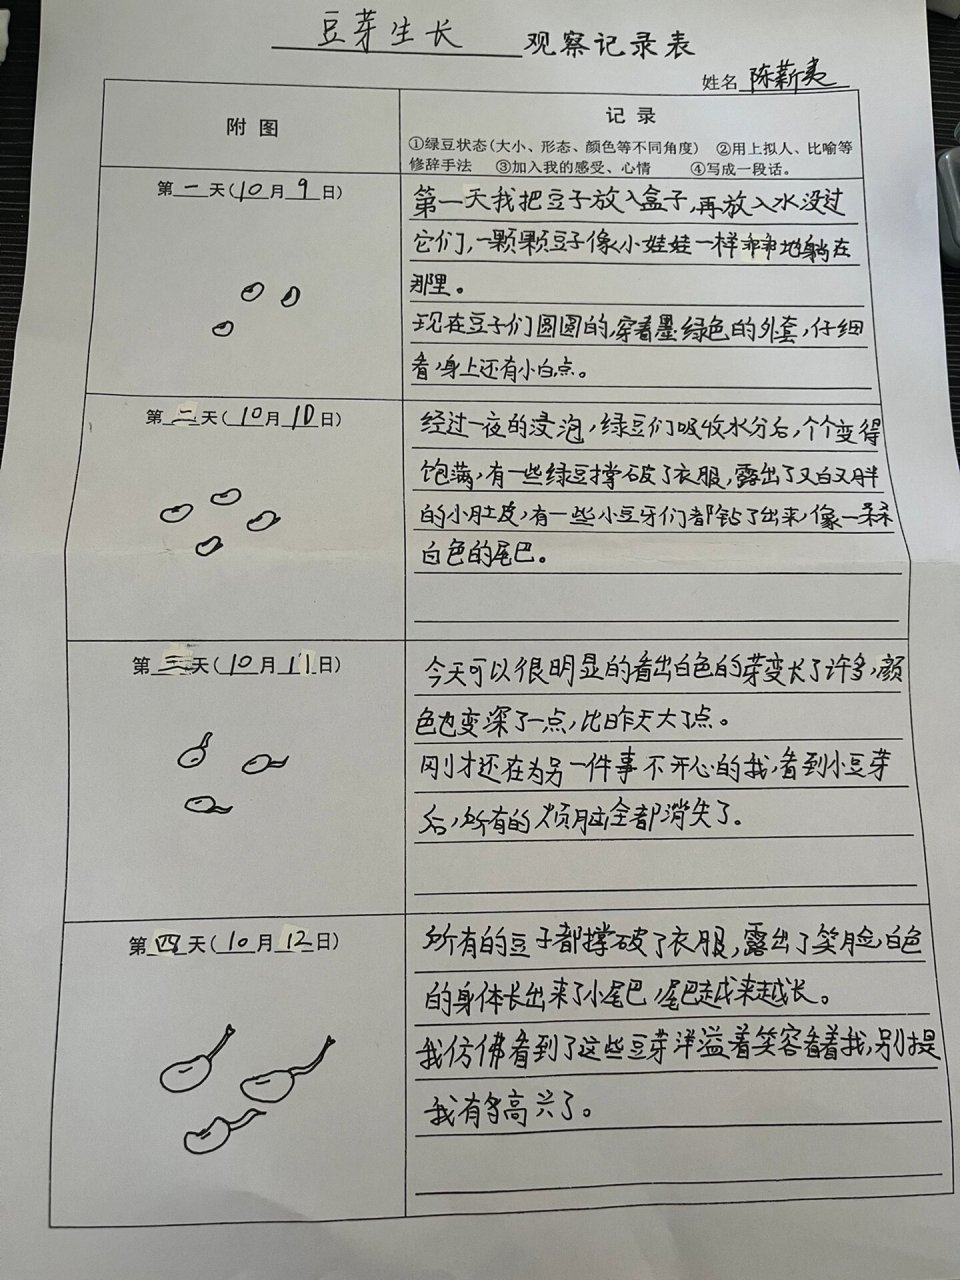 豆芽生长 观察记录表
姓名 陈薪夷
附图
记录
①绿豆状态(大小、形态、颜色等不同角度) ②用上拟人、比喻等
修辞手法 ③加入我的感受、心情 ④写成一段话。
第一天(10月9日)
第一天我把豆子放入盒子,再放入水没过
它们,一颗颗豆子像小娃娃一样乖乖地躺在
那里。
现在豆子们圆圆的,穿着墨绿色的外套,仔细
看,身上还有小白点。
第二天(10月10日)
经过一夜的浸泡,绿豆们吸收水分后,个个变得
饱满,有一些绿豆撑破了衣服,露出了又白又胖
的小肚皮,有一些小豆牙们都钻了出来,像一条条
白色的尾巴。
第三天(10月11日)
今天可以很明显的看出白色的芽变长了许多,颜
色也变深了一点,比昨天大了点。
刚才还在为另一件事不开心的我,看到小豆芽
后,所有的烦脑全都消失了。
第四天(10月12日)
所有的豆子都撑破了衣服,露出了笑脸,白色
的身体长出来了小尾巴,尾巴越来越长。
我仿佛看到了这些豆芽洋溢着笑容看着我,别提
我有多高兴了。